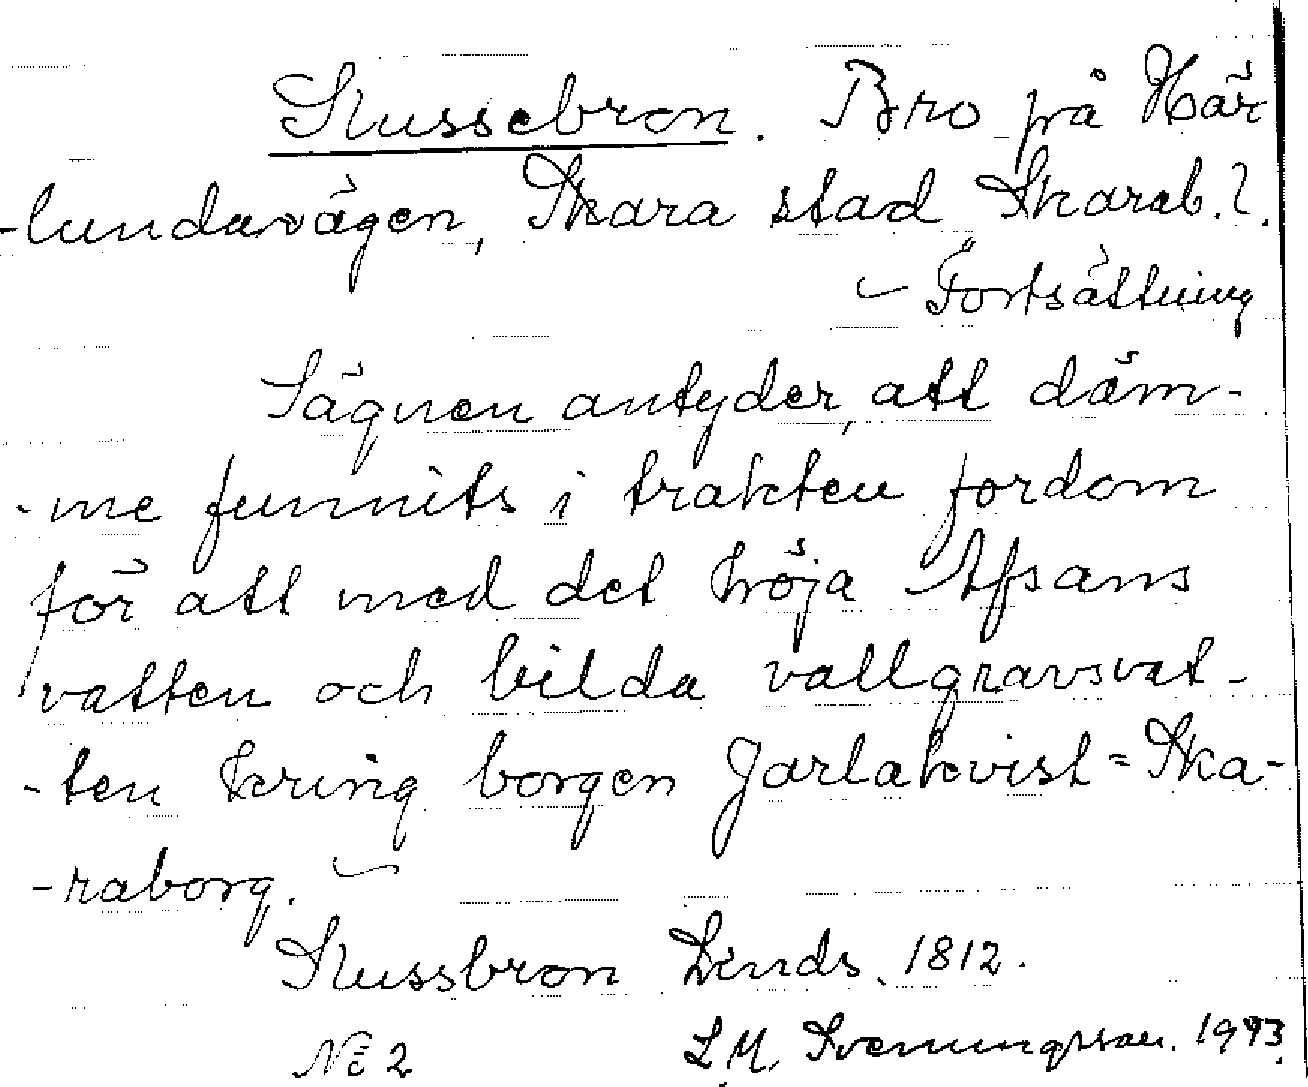 Slussebron. Bro på Här
-lundavägen, Skara stad Skarab. l.
- Fortsättning
Sägnen antyder, att däm-
-me funnits i trakten fordom
för att med det höja Afsans
vatten och bilda vallgravsvat-
-ten kring borgen Jarlakvist = Ska-
-raborg.
Slussbron Linds. 1812.
No 2 L. M. Svenungsson. 1993